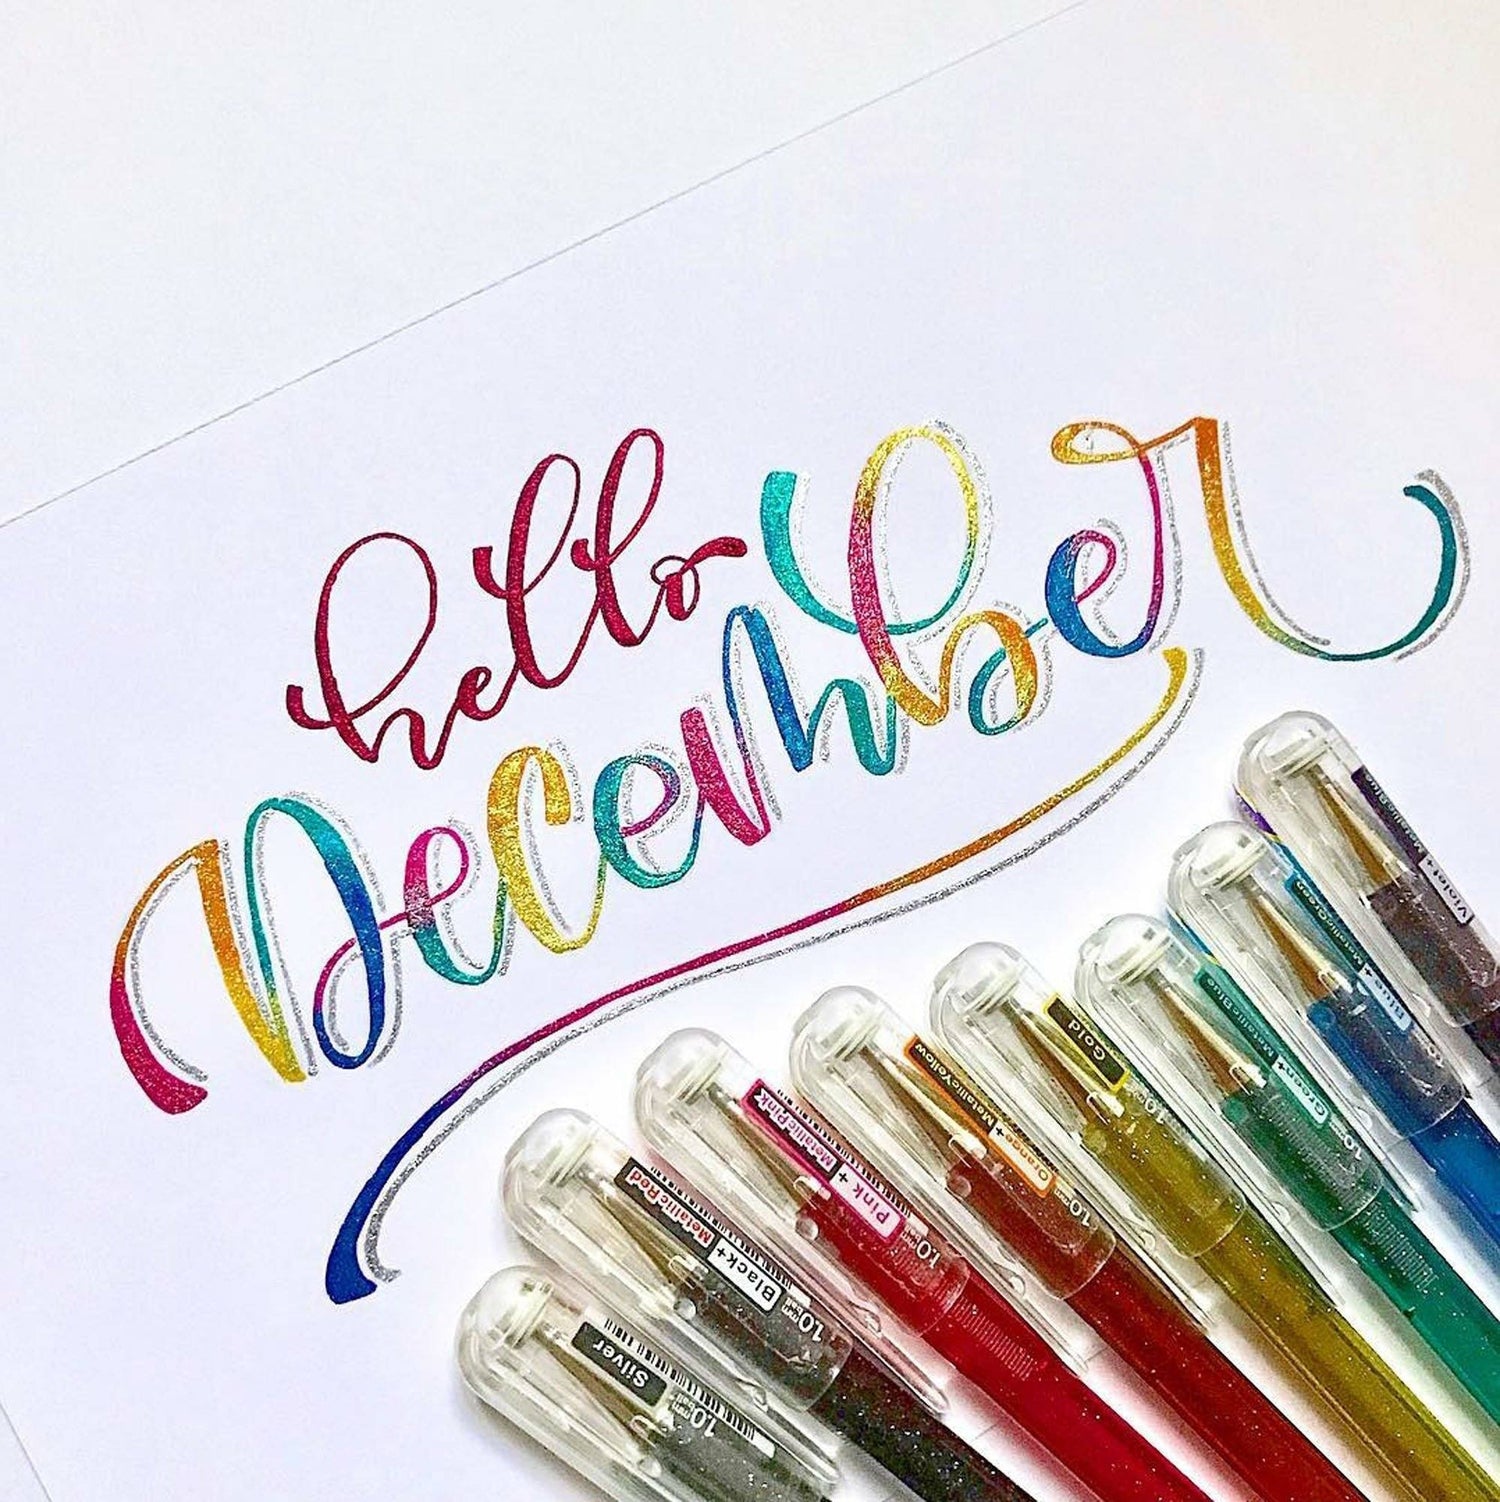 hello
December
Silver
1.0
Black+
MetallicRed
1.0
Pink+
MetallicPink
1.0
Orange+
MetallicYellow
1.0
Gold
1.0
Green+
MetallicBlue
1.0
Blue+
MetallicGreen
Violet+
MetallicBlue